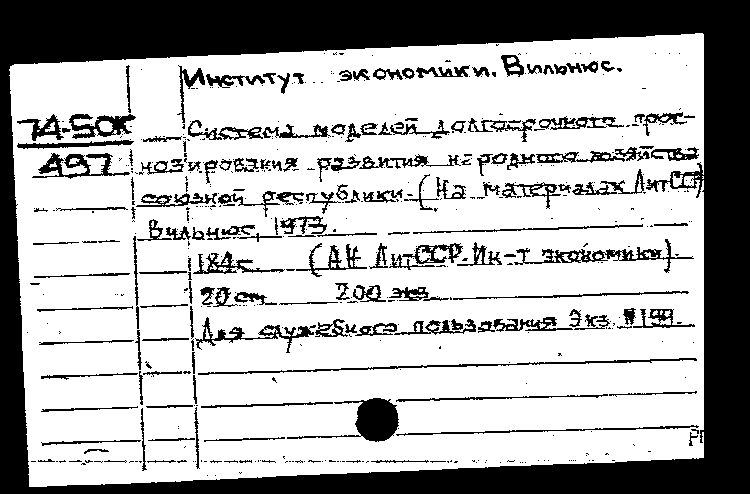 Институт экономики. Вильнюс.
74-5ОК
497
Система моделей долгосрочного прог-
нозирования развития народного хозяйства
союзной республики. (На материалах ЛитССР)
Вильнюс, 1973.
184с. (АН ЛитССР. Ин-т экономики).
20 см 200 экз.
Для служебного пользования Экз. №199.